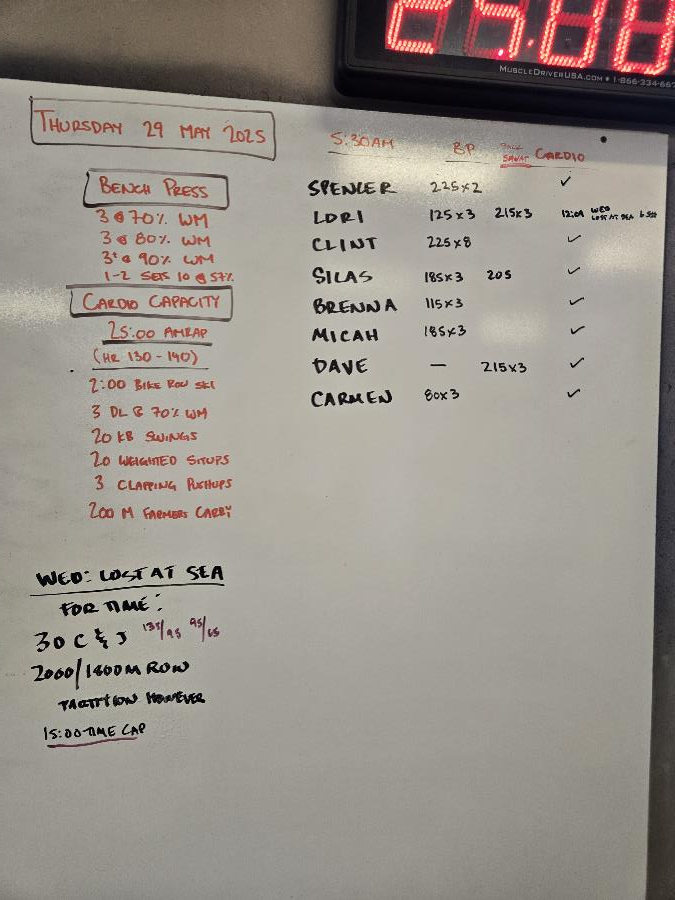 25:00
MUSCLEDRIVERUSA.COM • 1-866-334-667
THURSDAY 29 MAY 2025
BENCH PRESS
3 @ 70% WM
3 @ 80% WM
3+ @ 90% WM
1-2 SETS 10 @ 57%
CARDIO CAPACITY
25:00 AMRAP
(HR 130-140)
2:00 BIKE ROW SKI
3 DL @ 70% WM
20 KB SWINGS
20 WEIGHTED SITUPS
3 CLAPPING PUSHUPS
200 M FARMERS CARRY
WED: LOST AT SEA
FOR TIME:
30 C & J 135/95 95/65
2000/1800M ROW
PARTITION HOWEVER
15:00 TIME CAP
5:30AM BP BACK SQUAT CARDIO
SPENCER 225x2 ✓
LORI 125x3 215x3 12:09 WED LOST AT SEA
CLINT 225x8 ✓
SILAS 185x3 205 ✓
BRENNA 115x3 ✓
MICAH 185x3 ✓
DAVE — 215x3 ✓
CARMEN 80x3 ✓